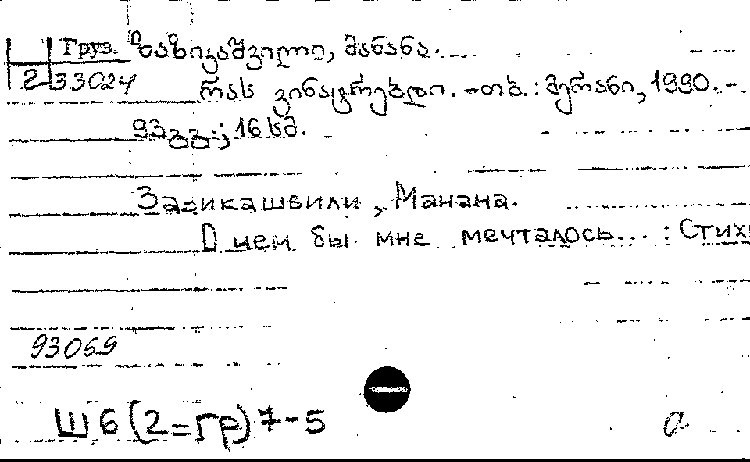 Груз. ზაზიკაშვილი, მანანა.
2 33024 რას ვინატრებდი. - თბ.: მერანი, 1990. -
93 გვ.; 16 სმ.
Зазикашвили, Манана.
О чем бы мне мечталось... : Стихи
93069
Ш6(2=Гр)7-5
а